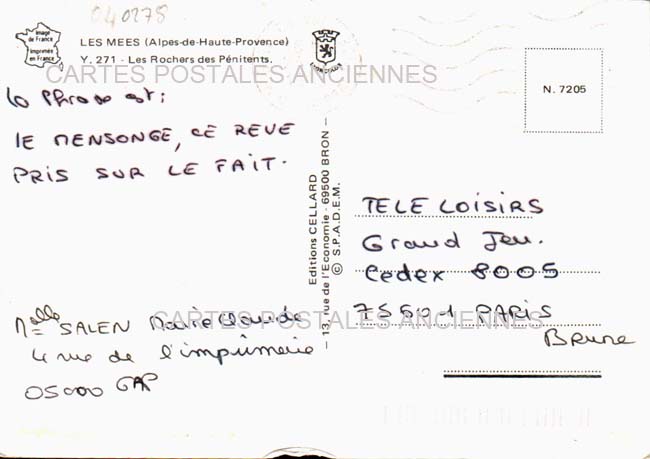 040278
Image de France
Imprimée en France
LES MEES (Alpes-de-Haute-Provence)
Y. 271 - Les Rochers des Pénitents.
CARTES POSTALES ANCIENNES
N. 7205
La Phrase est:
le MENSONGE, CE REVE
PRIS SUR LE FAIT.
Editions CELLARD
13, rue de l'Economie - 69500 BRON -
© S.P.A.D.E.M.
TELE LOISIRS
Grand Jeu.
Cedex 8005
75501 PARIS
BRUNE
CARTES POSTALES ANCIENNES
Melle SALEN Marie Claude
4 rue de l'imprimerie
05000 GAP